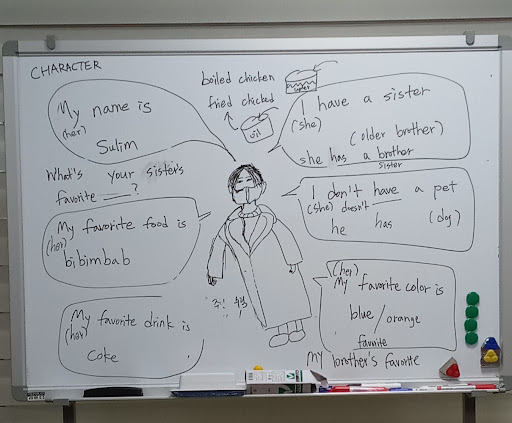 CHARACTER
My name is
(her)
Sulim
What's your sister's
favorite ?
My favorite food is
(her)
bibimbab
My favorite drink is
(her)
Coke
boiled chicken
fried chicked
water
oil
I have a sister
(she)
(older brother)
she has a brother
sister
I don't have a pet
(she) doesn't
he has (dog)
(her)
My favorite color is
blue / orange
favorite
My brother's favorite